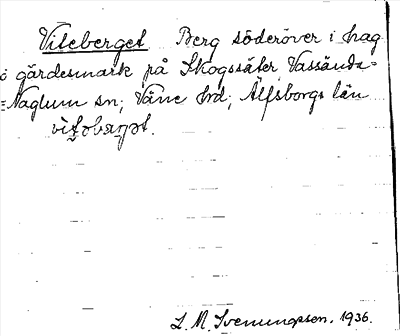 Vileberget Berg söderöver i hag
gärdesmark på Skogssäter, Vassända-
=Naglum sn; Väne hrd; Älfsborgs län
L. M. Svenungsson. 1936.